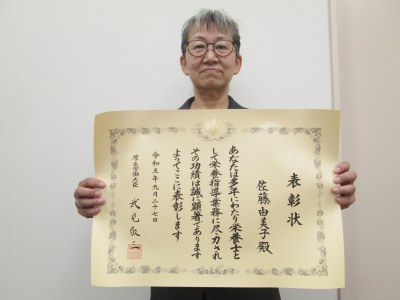 表彰状
佐藤由美子殿
あなたは多年にわたり栄養士と
して栄養指導業務に尽力され
その功績は誠に顕著であります
よってここに表彰します
令和五年九月二十七日
厚生労働大臣 武見敬三